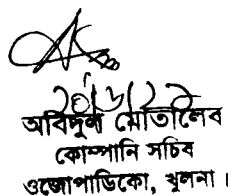 আবদুল মোতালেব
কোম্পানি সচিব
ওজোপাডিকো, খুলনা।